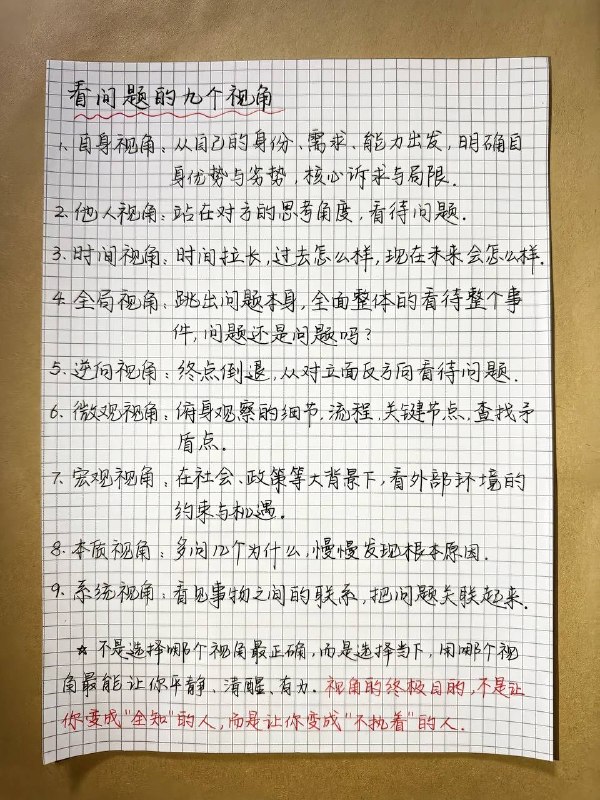 看问题的九个视角
1. 自身视角：从自己的身份、需求、能力出发，明确自
身优势与劣势，核心诉求与局限.
2. 他人视角：站在对方的思考角度，看待问题.
3. 时间视角：时间拉长，过去怎么样，现在未来会怎么样.
4. 全局视角：跳出问题本身，全面整体的看待整个事
件，问题还是问题吗？
5. 逆向视角：终点倒退，从对立面反方向看待问题.
6. 微观视角：俯身观察的细节，流程，关键节点，查找矛
盾点.
7. 宏观视角：在社会、政策等大背景下，看外部环境的
约束与机遇.
8. 本质视角：多问几个为什么，慢慢发现根本原因.
9. 系统视角：看见事物之间的联系，把问题关联起来.
☆ 不是选择哪个视角最正确，而是选择当下，用哪个视
角最能让你平静、清醒、有力. 视角的终极目的，不是让
你变成“全知”的人，而是让你变成“不执着”的人.